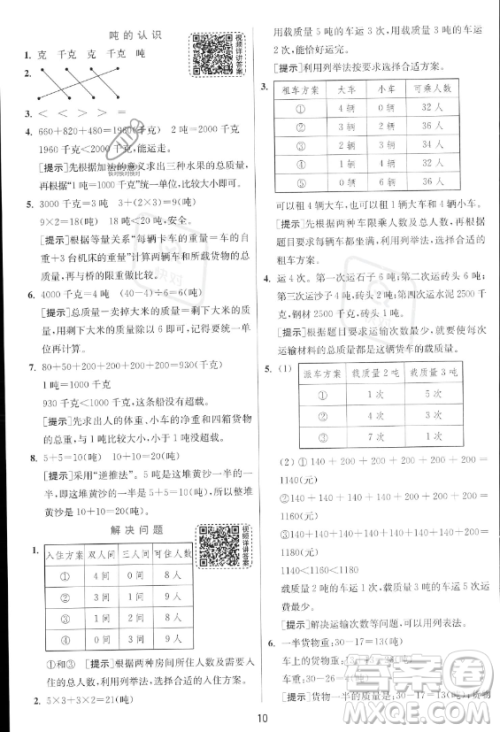 吨的认识
1. 克 千克 克 千克 吨
2.
3. < < < > >
4. 660+820+480=1960(千克) 2吨=2000千克
1960千克<2000千克,能运走。
[提示]先根据加法的意义求出三种水果的总质量,
再根据“1吨=1000千克”统一单位,比较大小。
5. 3000千克=3吨 3+(2×3)=9(吨)
9×2=18(吨) 18吨<20吨,安全。
[提示]根据等量关系“每辆卡车的重量=车的自
重+3台机床的重量”计算两辆卡车和所载货物的总
质量,再与桥的限重比大小。
6. 4000千克=4吨 (40-4)÷6=6(吨)
[提示]总质量-卖掉大米的质量=剩下大米的质
量,用剩下大米的质量除以6即可。注意要统一单
位再计算。
7. 80+50+20+200+200+200+200=930(千克)
930千克<1吨,所以没有超载。
[提示]先求出人的体重、小车的净重和四箱货物
的总重,与1吨比较大小,小于1吨就没有超载。
8. 5+5=10(吨) 10+10=20(吨)
[提示]采用“逆推法”。5吨是这堆黄沙一半的一
半,即这堆黄沙质量的一半是5+5=10(吨),所以
这堆黄沙是10+10=20(吨)。
视频详讲答案
解决问题
1.
入住方案 双人间 三人间 可住人数
① 4间 0间 8人
② 3间 1间 9人
③ 1间 2间 8人
④ 0间 3间 9人
①和③ [提示]根据两种房间所住人数及需要入
住的总人数,利用列举法,选择合适的入住方案。
2. 5×3+3×2=21(吨)
视频详讲答案
载质量5吨的车运3次,载质量3吨的车运2次,
能恰好运完。
[提示]利用列举法按要求选择合适方案。
3.
租车方案 大车 小车 可乘人数
① 4辆 0辆 32人
② 3辆 2辆 32人
③ 2辆 4辆 32人
④ 1辆 7辆 36人
⑤ 0辆 9辆 36人
可以租4辆大车,也可以租3辆大车、2辆小车,还
可以租2辆大车、4辆小车。
[提示]先根据两种车限乘人数及总人数,再根据
题目要求每辆车都坐满,利用列举法,选择合适的
租车方案。
4. 运4次。第一次运石子6吨;第二次运砖头6吨;
第三次运沙子4吨,砖头2吨;第四次运水泥2500千
克,钢材2500千克。
[提示]根据题目要求运输次数要最少,需要每次
运输材料的质量尽量满足这辆货车的载质量。
5. (1)
派车方案 载质量2吨 载质量3吨
① 1次 5次
② 4次 3次
③ 7次 1次
(2) ①140+200+200+200+200+200=
1140(元)
②140+140+140+140+200+200+200=
1160(元)
③140+140+140+140+140+140+140+200=
1180(元)
1140<1160<1180
载质量2吨的车运1次,载质量3吨的车运5次运
费最少,最少是1140元。
[提示]解决运输次数等问题,可以用列表的方法
有序地列举。
6. 一半货物重:30-17=13(吨)
车上的货物重:13+13=26(吨)
车重:30-26=4(吨)
[提示]货物一半的质量是30-17=13(吨),货物
10
答案圈
MXQE.COM